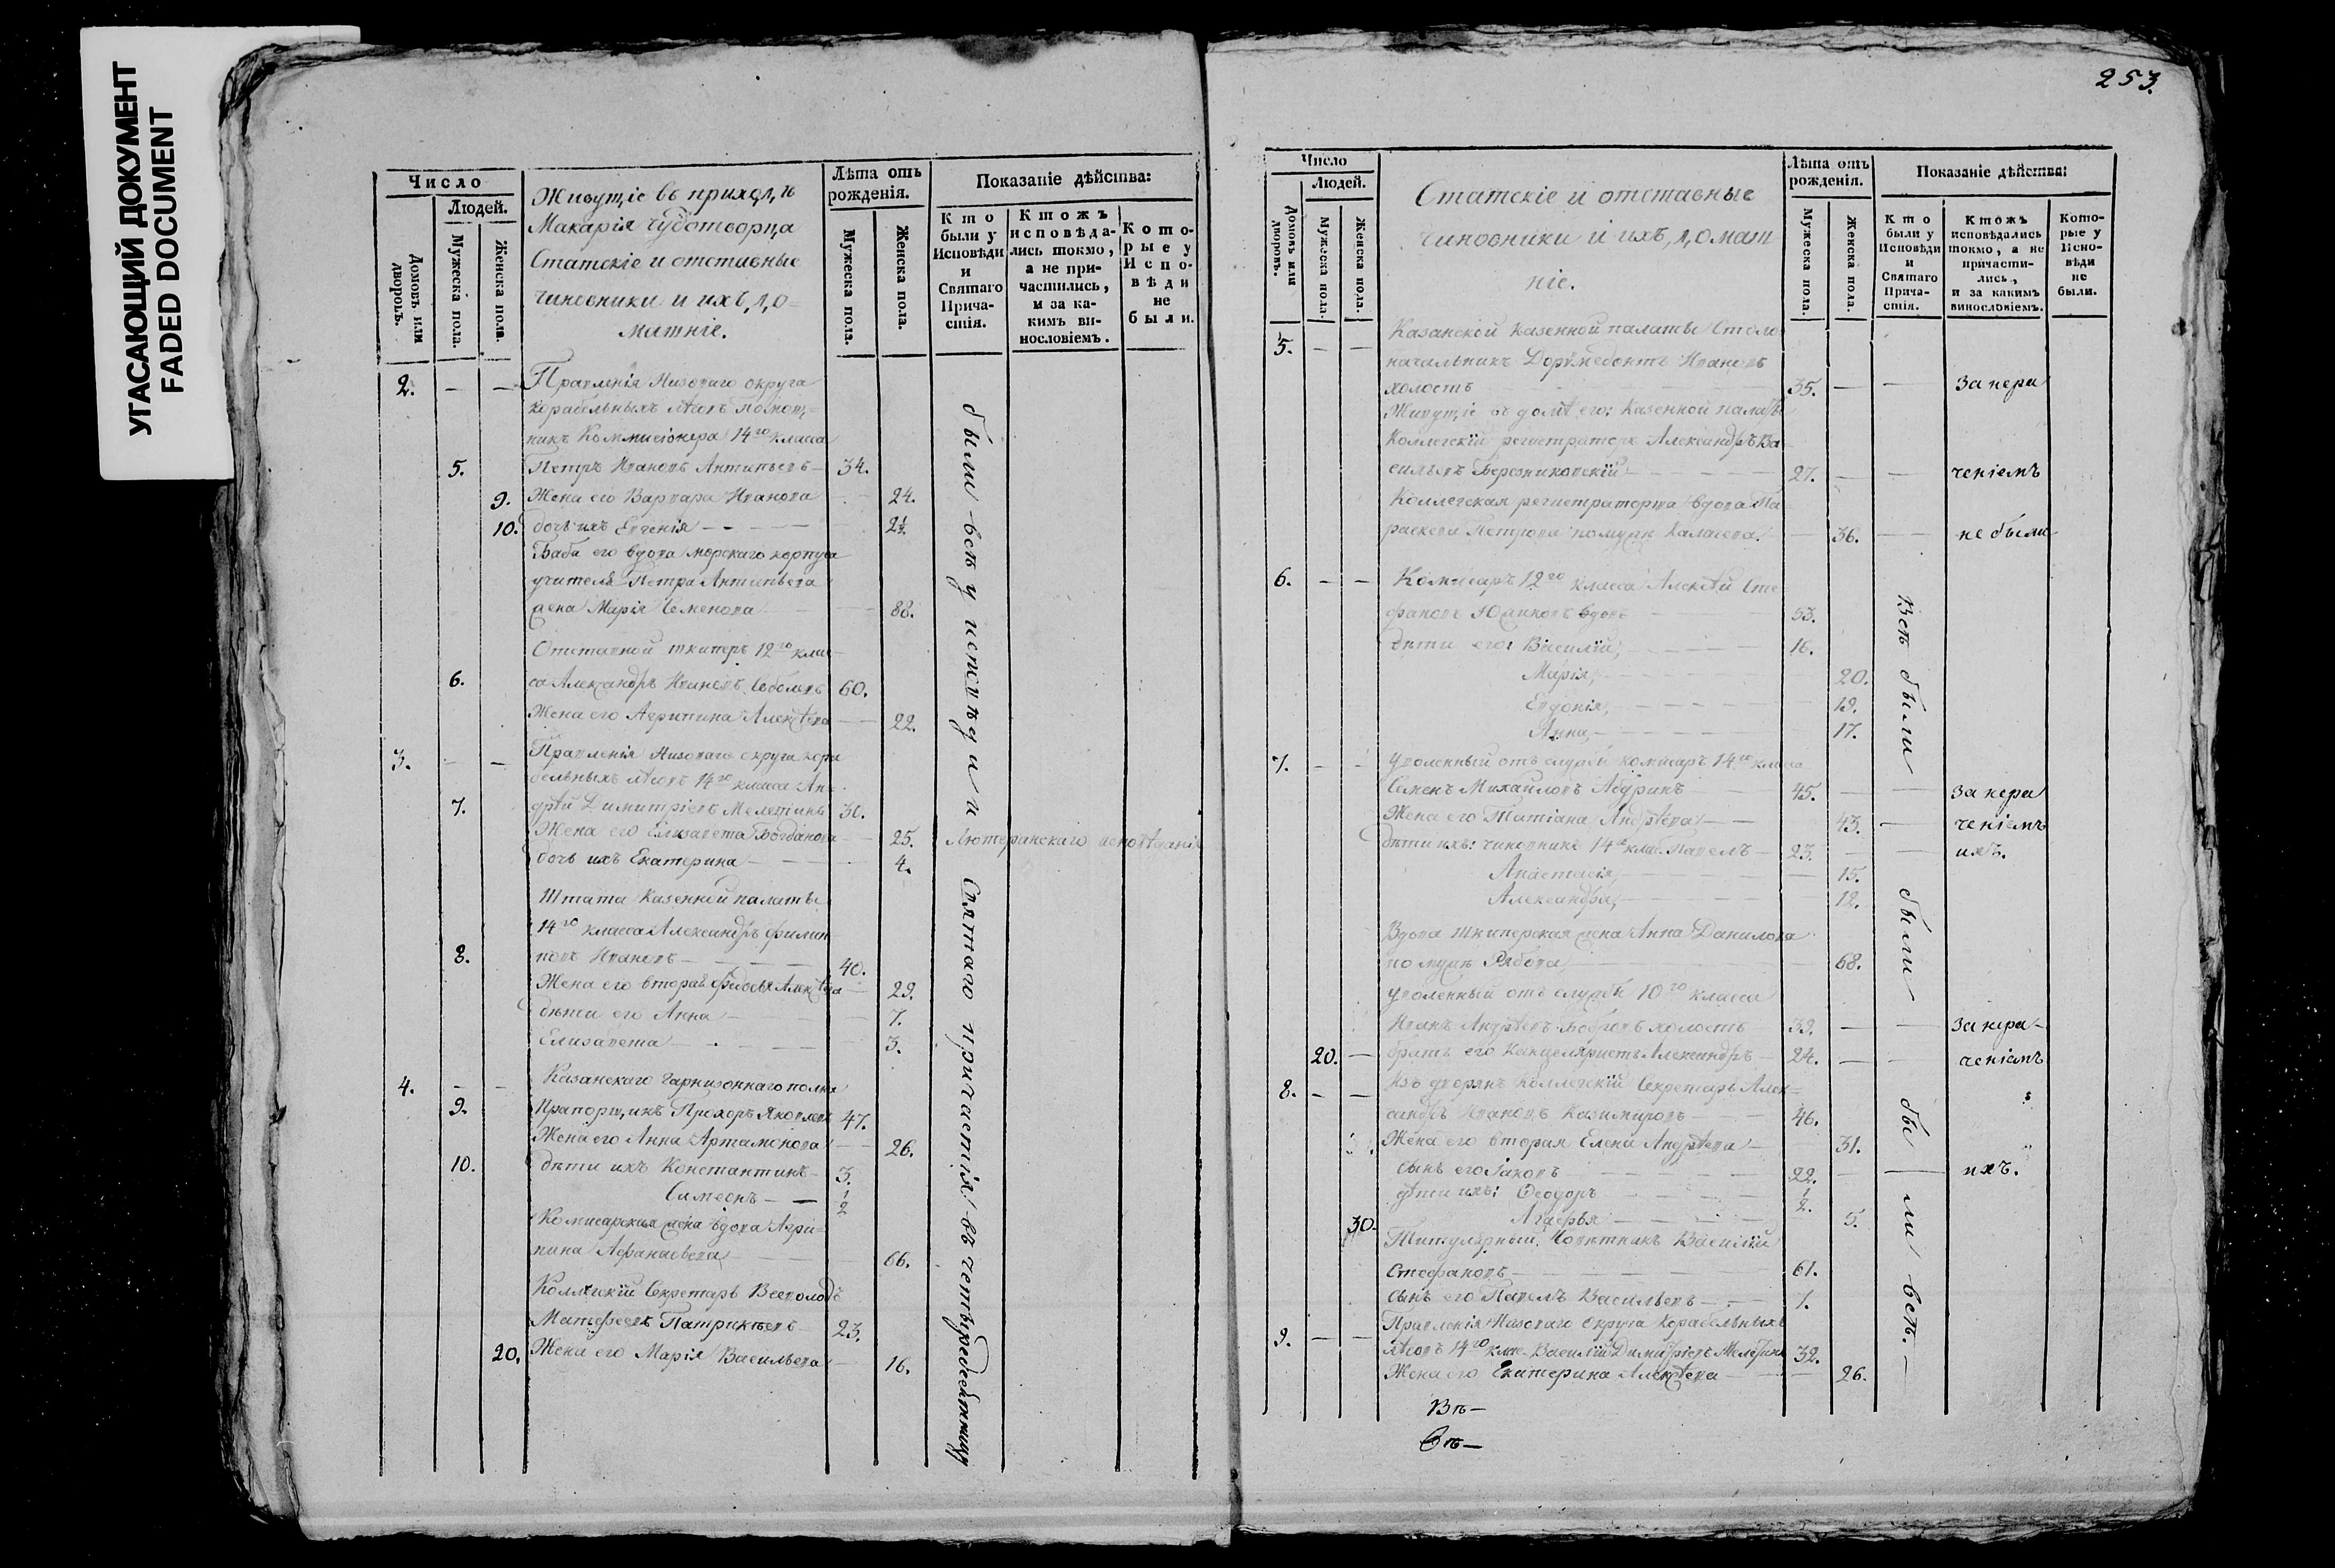 УГАСАЮЩИЙ ДОКУМЕНТ
FADED DOCUMENT
Число
Людей.
Домовъ или дворовъ.
Мужеска пола.
Женска пола.
Живущіе въ приходѣ
Макарія чудотворца
Статскіе и отставные
чиновники и ихъ до=
машніе.
Лѣта отъ
рожденія.
Мужеска пола.
Женска пола.
Показаніе дѣйства:
Кто
были у
Исповѣди
и
Святаго
Прича-
стія.
Ктожъ
исповѣда-
лись токмо,
а не при-
частились,
и за ка-
кимъ ви-
нословіемъ.
Кото-
рые у
Испо-
вѣди
не
были.
2. — — Правленія Низоваго округа
корабельныхъ лѣсовъ
никъ Коммисіонера 14го класса
5. Петръ Ивановъ Антипьевъ — 34.
9. Жена его Варвара Иванова 24.
10. дочь ихъ Евгенія — — — 2½
Баба его вдова морскаго корпуса
учителя Петра Антипьева
жена Марія Семенова 88.
Отставной шкиперъ 12го клас-
6. са Александръ Ивановъ Соболевъ 60.
Жена его Агрипина Алексѣева — 22.
3. — — Правленія Низоваго округа кора
бельныхъ лѣсовъ 14го класса Ан-
7. дрей Димитріевъ Мелетинъ 30.
Жена его Елизавета Богданова 25. Лютеранскаго исповѣданія
дочь ихъ Екатерина — — 4.
Штата Казенной палаты
14го класса Александръ Филип
8. повъ Ивановъ — — — 40.
Жена его вторая Федосья Алексѣева 29.
дѣти его Анна 7.
Елизавета — 3.
4. — — Казанскаго гарнизоннаго полка
9. Прапорщикъ Прохоръ Яковлевъ 47.
Жена его Анна Артамонова — 26.
10. дѣти ихъ Константинъ — 3.
Симеонъ — — ½
Комисарская жена вдова Агри=
пина Афанасьева 66.
Коллежскій Секретарь Всеволодъ
Матфеевъ Патрикѣевъ 23.
20. Жена его Марія Васильева — 16.
были всѣ у исповѣди и Святаго причастія въ четыредесятницу
253.
Число
Людей.
Домовъ или дворовъ.
Мужеска пола.
Женска пола.
Статскіе и отставные
чиновники и ихъ домаш
ніе.
Лѣта отъ
рожденія.
Мужеска пола.
Женска пола.
Показаніе дѣйства:
Кто
были у
Исповѣди
и
Святаго
Прича-
стія.
Ктожъ
исповѣдались
токмо, а не
причасти-
лись,
и за какимъ
винословіемъ.
Кото-
рые у
Испо-
вѣди
не
были.
5. — — Казанской казенной палаты Столо
начальникъ Доримедонтъ Ивановъ
холостъ 35. — — За нера
Живущіе въ домѣ его: Казенной палаты
Коллежскій регистраторъ Александръ Ва
сильевъ Березниковскій 27. — — ченіемъ
Коллежская регистраторша вдова Па
раскева Петрова по мужѣ 36. — не были
6. — — Комисаръ 12го класса Алексѣй Сте
фановъ вдовъ 53.
дѣти его: Василій, 16.
Марія, 20.
Евдокія, 19.
Анна, 17.
7. — — Уволенный отъ службы комисаръ 14го класса
Семенъ Михайловъ 45. — — За нера
Жена его Татіана Андрѣева — 43. — ченіемъ
дѣти ихъ: чиновникъ 14го клас. Павелъ — 23. — — ихъ.
Анастасія, 15.
Александра, 12.
Вдова шкиперская жена Анна Данилова
по мужѣ Рябова 68.
Уволенный отъ службы 10го класса
Иванъ Андрѣевъ Бобровъ холостъ 39. — — За нера-
20. — братъ его Канцеляристъ Александръ — 24. — — ченіемъ
8. — — Изъ дворянъ Коллежскій Секретарь Алек=
сандръ Ивановъ Казимировъ 46.
Жена его вторая Елена Андрѣева 31.
Сынъ его Іаковъ 22. — — ихъ.
дѣти ихъ: Феодоръ ½.
30. 5.
Титулярный Совѣтникъ Василій
Стефановъ 61.
Сынъ его Павелъ Васильевъ — 7.
Правленія Низоваго округа Корабельныхъ
9. — — лѣсовъ 14го клас. Василій Димитріевъ Мелетинъ 32.
Жена его Екатерина Алексѣева 26.
Всѣ были были бы — ли всѣ. —
Вѣ —
Съ —